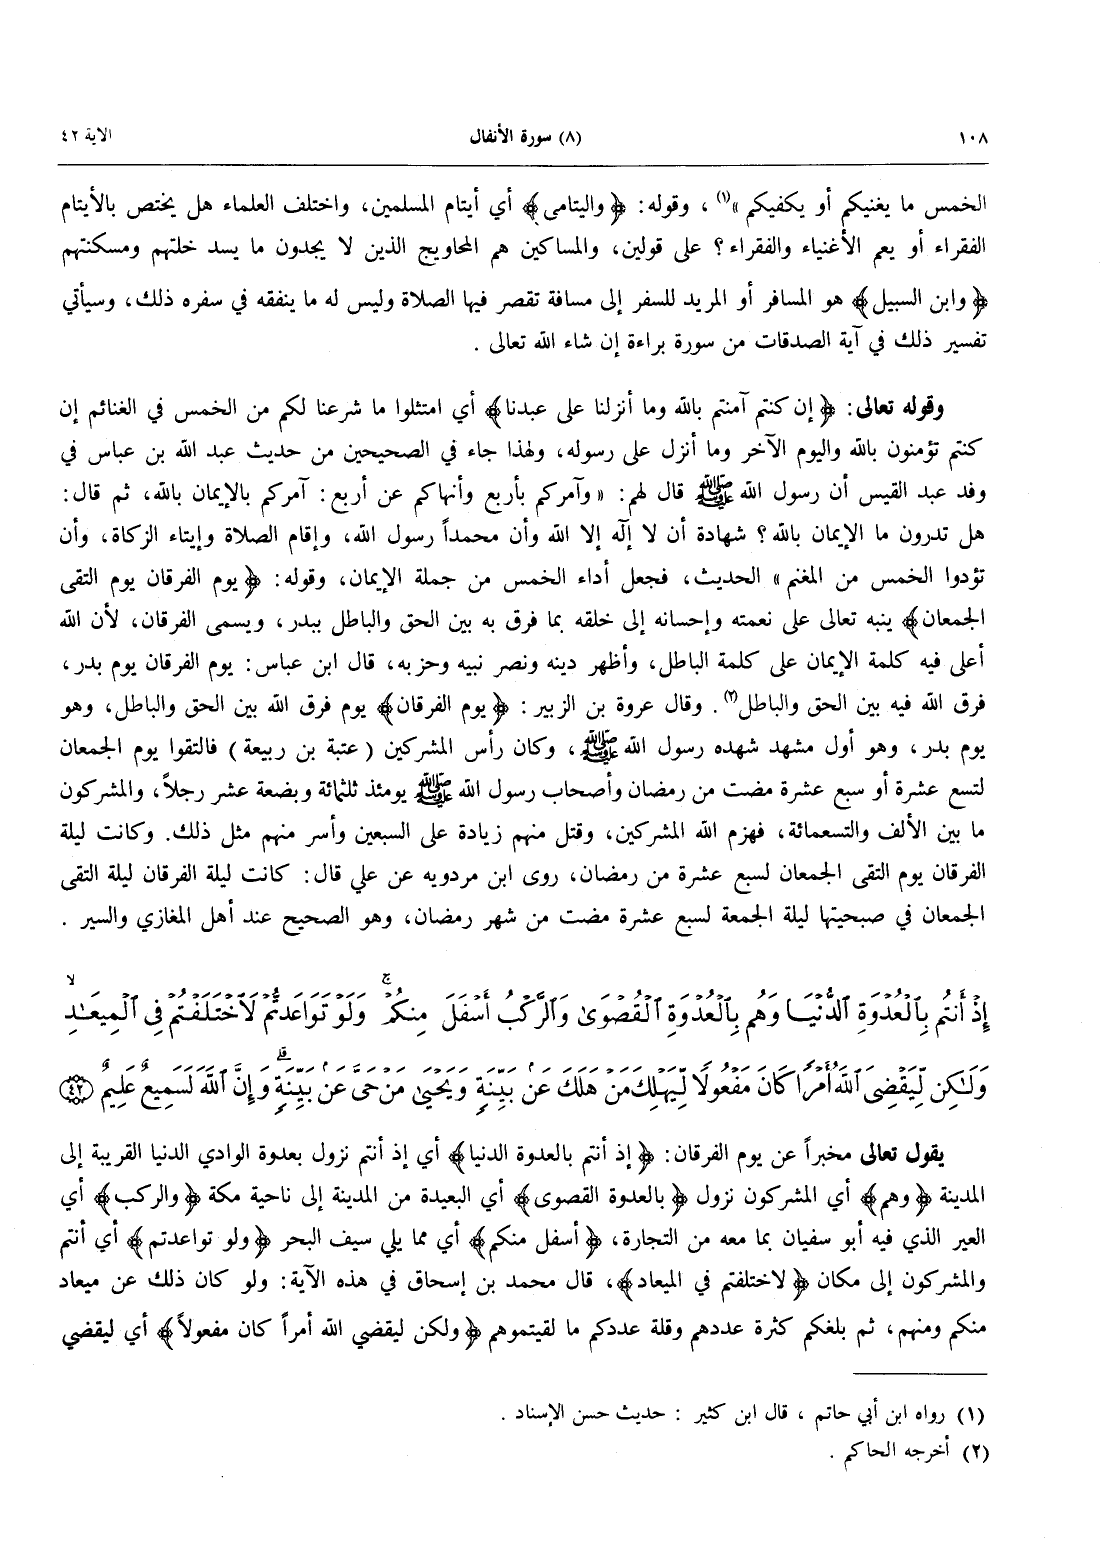 ١٠٨ (٨) سورة الأنفال الآية ٤٢
الخمس ما يغنيكم أو يكفيكم »(١) ، وقوله: ﴿ واليتامى﴾ أي أيتام المسلمين، واختلف العلماء هل يختص بالأيتام
الفقراء أو يعم الأغنياء والفقراء؟ على قولين، والمساكين هم المحاويج الذين لا يجدون ما يسد خلتهم ومسكنتهم
﴿ وابن السبيل﴾ هو المسافر أو المريد للسفر إلى مسافة تقصر فيها الصلاة وليس له ما ينفقه في سفره ذلك، وسيأتي
تفسير ذلك في آية الصدقات من سورة براءة إن شاء الله تعالى .
وقوله تعالى: ﴿ إن كنتم آمنتم بالله وما أنزلنا على عبدنا﴾ أي امتثلوا ما شرعنا لكم من الخمس في الغنائم إن
كنتم تؤمنون بالله واليوم الآخر وما أنزل على رسوله، ولهذا جاء في الصحيحين من حديث عبد الله بن عباس في
وفد عبد القيس أن رسول الله ﷺ قال لهم: « وآمركم بأربع وأنهاكم عن أربع: آمركم بالإيمان بالله، ثم قال:
هل تدرون ما الإيمان بالله؟ شهادة أن لا إلٓه إلا الله وأن محمداً رسول الله، وإقام الصلاة وإيتاء الزكاة، وأن
تؤدوا الخمس من المغنم » الحديث، فجعل أداء الخمس من جملة الإيمان، وقوله: ﴿ يوم الفرقان يوم التقى
الجمعان﴾ ينبه تعالى على نعمته وإحسانه إلى خلقه بما فرق به بين الحق والباطل ببدر، ويسمى الفرقان، لأن الله
أعلى فيه كلمة الإيمان على كلمة الباطل، وأظهر دينه ونصر نبيه وحزبه، قال ابن عباس: يوم الفرقان يوم بدر،
فرق الله فيه بين الحق والباطل(٢) . وقال عروة بن الزبير : ﴿ يوم الفرقان﴾ يوم فرق الله بين الحق والباطل، وهو
يوم بدر، وهو أول مشهد شهده رسول الله ﷺ ، وكان رأس المشركين ( عتبة بن ربيعة ) فالتقوا يوم الجمعان
لتسع عشرة أو سبع عشرة مضت من رمضان وأصحاب رسول الله ﷺ يومئذ ثلثمائة وبضعة عشر رجلاً، والمشركون
ما بين الألف والتسعمائة، فهزم الله المشركين، وقتل منهم زيادة على السبعين وأسر منهم مثل ذلك. وكانت ليلة
الفرقان يوم التقى الجمعان لسبع عشرة من رمضان، روى ابن مردويه عن علي قال: كانت ليلة الفرقان ليلة التقى
الجمعان في صبحيتها ليلة الجمعة لسبع عشرة مضت من شهر رمضان، وهو الصحيح عند أهل المغازي والسير .
إِذْ أَنتُم بِٱلْعُدْوَةِ ٱلدُّنْيَا وَهُم بِٱلْعُدْوَةِ ٱلْقُصْوَىٰ وَٱلرَّكْبُ أَسْفَلَ مِنكُمْ ۚ وَلَوْ تَوَاعَدتُّمْ لَٱخْتَلَفْتُمْ فِى ٱلْمِيعَـٰدِ ۙ
وَلَـٰكِن لِّيَقْضِىَ ٱللَّهُ أَمْرًا كَانَ مَفْعُولًا لِّيَهْلِكَ مَنْ هَلَكَ عَنۢ بَيِّنَةٍ وَيَحْيَىٰ مَنْ حَىَّ عَنۢ بَيِّنَةٍ ۗ وَإِنَّ ٱللَّهَ لَسَمِيعٌ عَلِيمٌ ٤٢
يقول تعالى مخبراً عن يوم الفرقان: ﴿ إذ أنتم بالعدوة الدنيا﴾ أي إذ أنتم نزول بعدوة الوادي الدنيا القريبة إلى
المدينة ﴿ وهم﴾ أي المشركون نزول ﴿ بالعدوة القصوى﴾ أي البعيدة من المدينة إلى ناحية مكة ﴿ والركب﴾ أي
العير الذي فيه أبو سفيان بما معه من التجارة، ﴿ أسفل منكم﴾ أي مما يلي سيف البحر ﴿ ولو تواعدتم﴾ أي أنتم
والمشركون إلى مكان ﴿ لاختلفتم في الميعاد﴾، قال محمد بن إسحاق في هذه الآية: ولو كان ذلك عن ميعاد
منكم ومنهم، ثم بلغكم كثرة عددهم وقلة عددكم ما لقيتموهم ﴿ ولكن ليقضي الله أمراً كان مفعولاً﴾ أي ليقضي
(١) رواه ابن أبي حاتم ، قال ابن كثير : حديث حسن الإسناد .
(٢) أخرجه الحاكم .